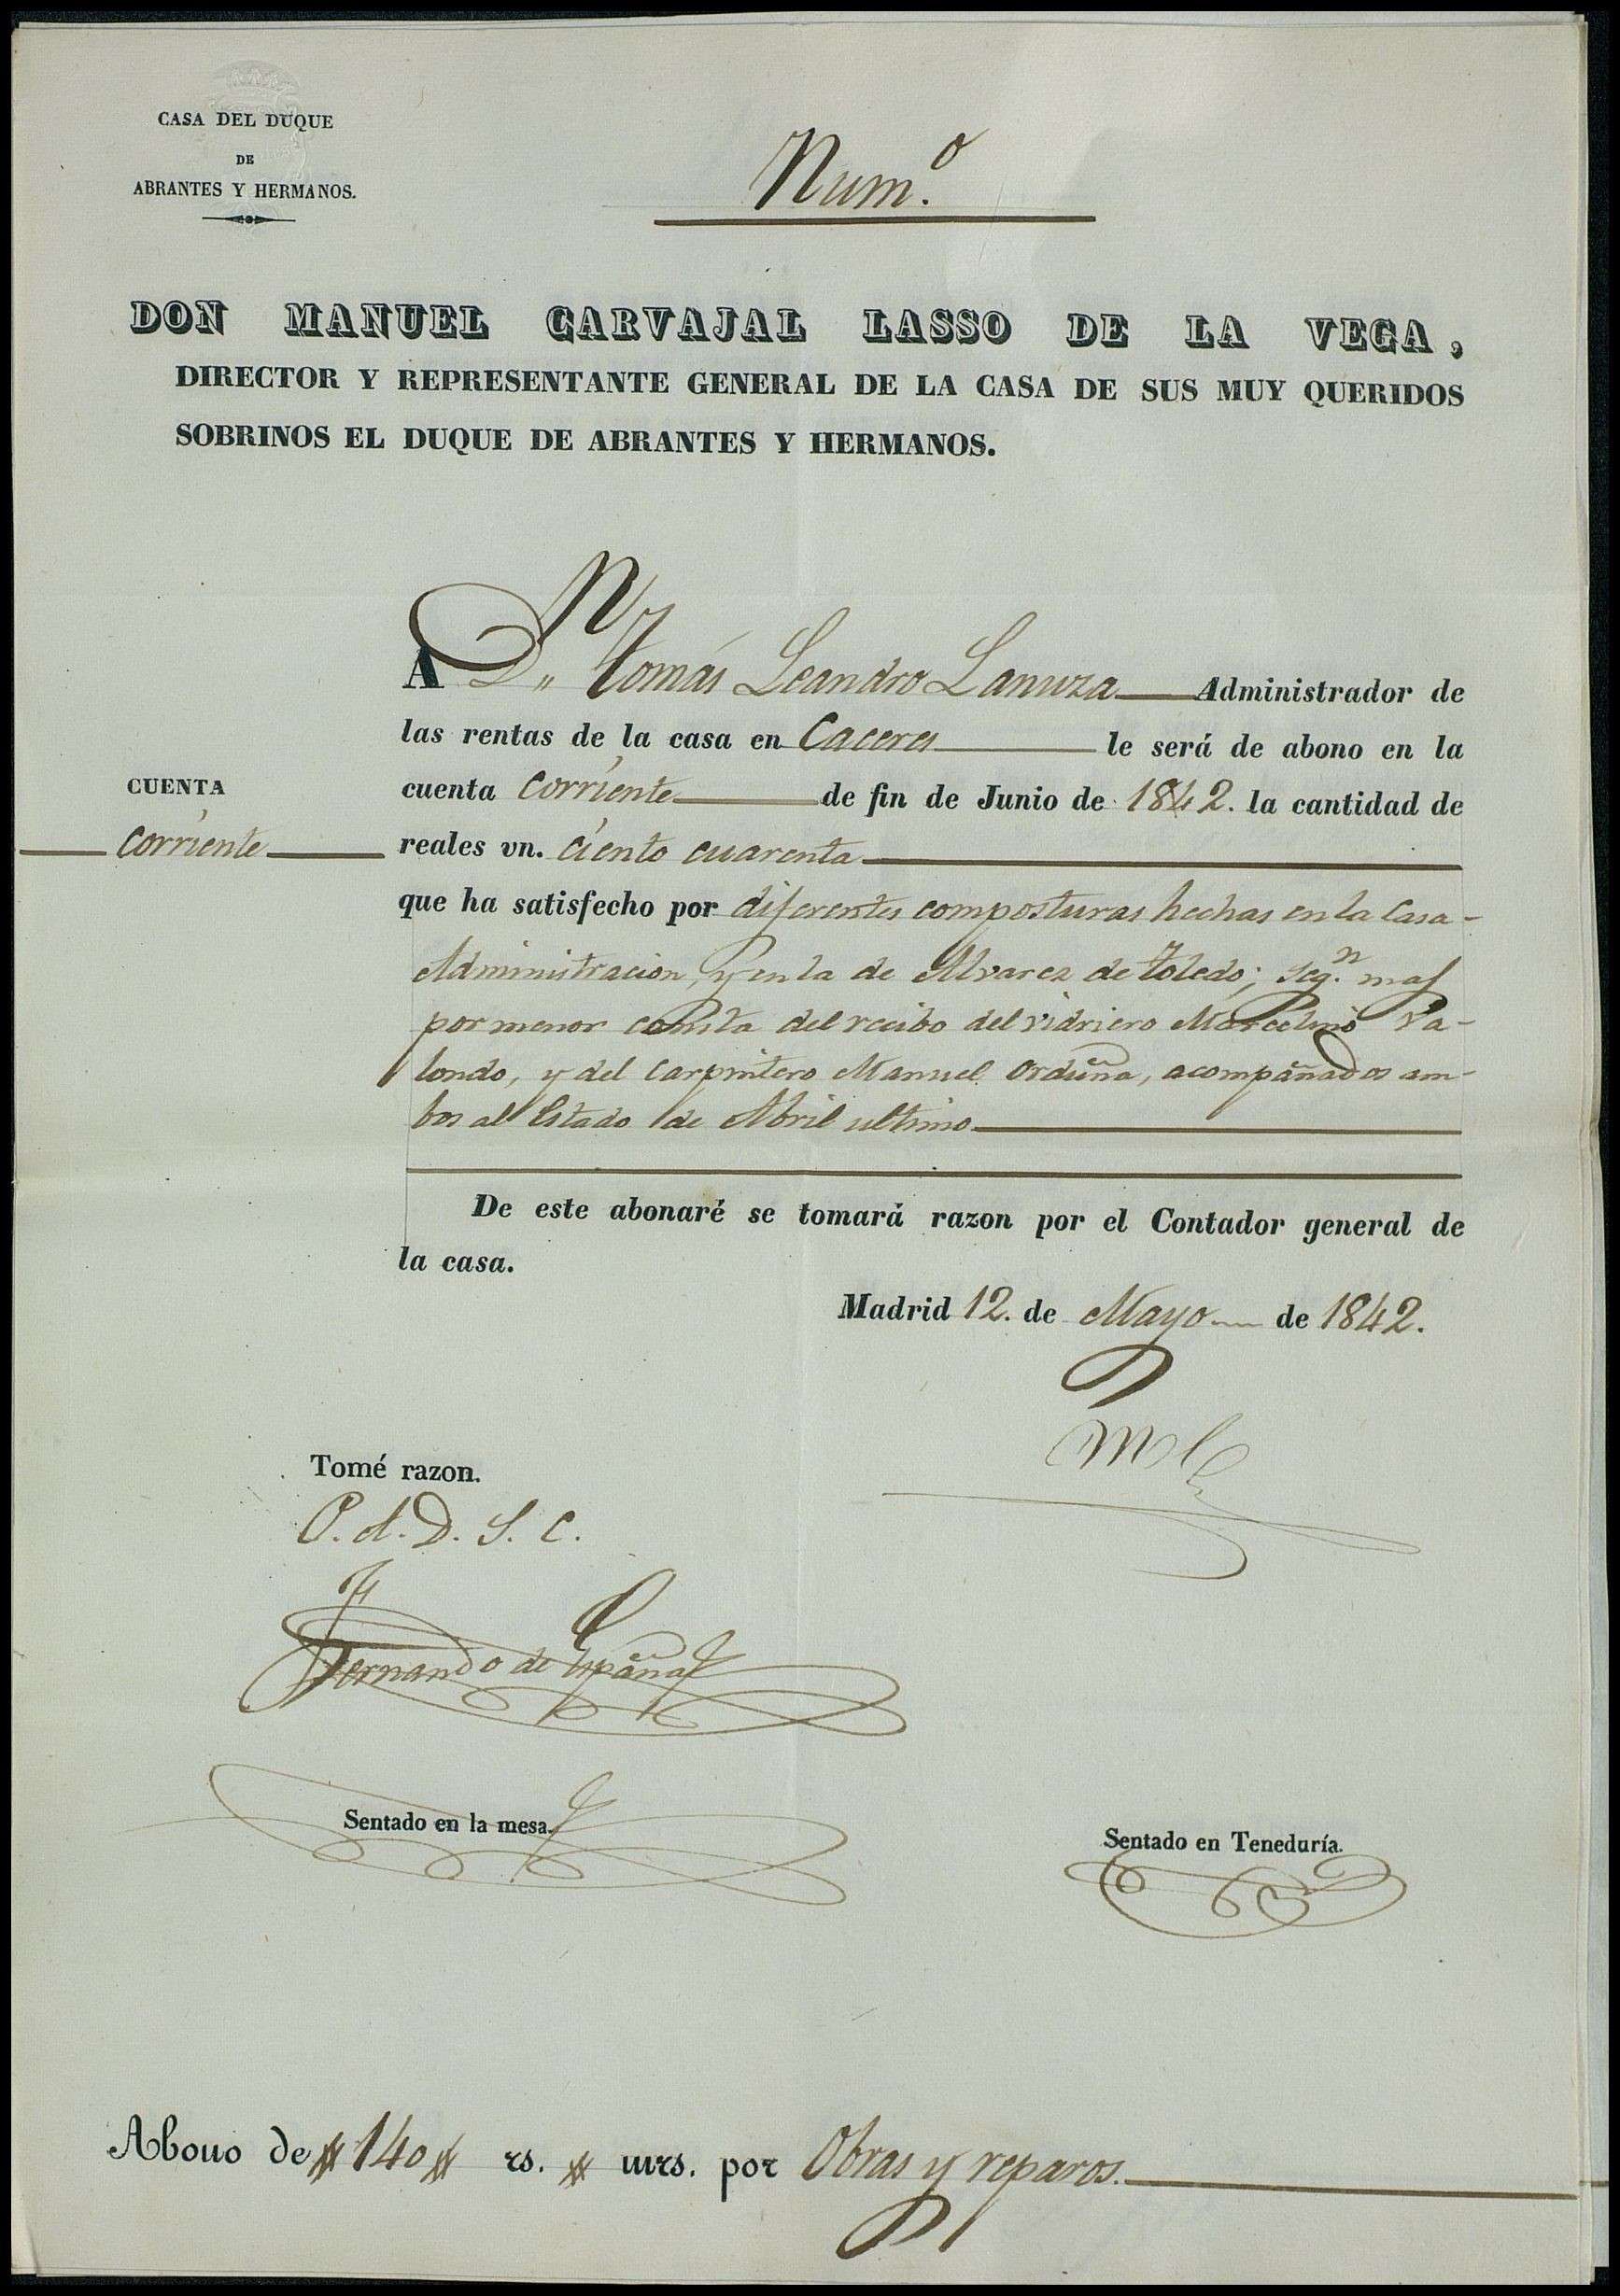 CASA DEL DUQUE
DE
ABRANTES Y HERMANOS.
Num.º
DON MANUEL CARVAJAL LASSO DE LA VEGA,
DIRECTOR Y REPRESENTANTE GENERAL DE LA CASA DE SUS MUY QUERIDOS
SOBRINOS EL DUQUE DE ABRANTES Y HERMANOS.
A D.n Tomás Leandro Lanuza Administrador de
las rentas de la casa en Caceres le será de abono en la
CUENTA
corriente
cuenta corriente de fin de Junio de 1842. la cantidad de
reales vn. ciento cuarenta
que ha satisfecho por diferentes composturas hechas en la Casa-
Administracion, y en la de Alvarez de Toledo; seg.n mas
por menor consta del recibo del vidriero Marcelino
londo, y del Carpintero Manuel Orduña, acompañados am-
bos al Estado de Abril ultimo
De este abonaré se tomará razon por el Contador general de
la casa.
Madrid 12. de Mayo de 1842.
Tomé razon.
P. d. D. S. C.
Fernando de España
Sentado en la mesa.
Sentado en Teneduría.
Abono de 140 rs. mrs. por Obras y reparos.